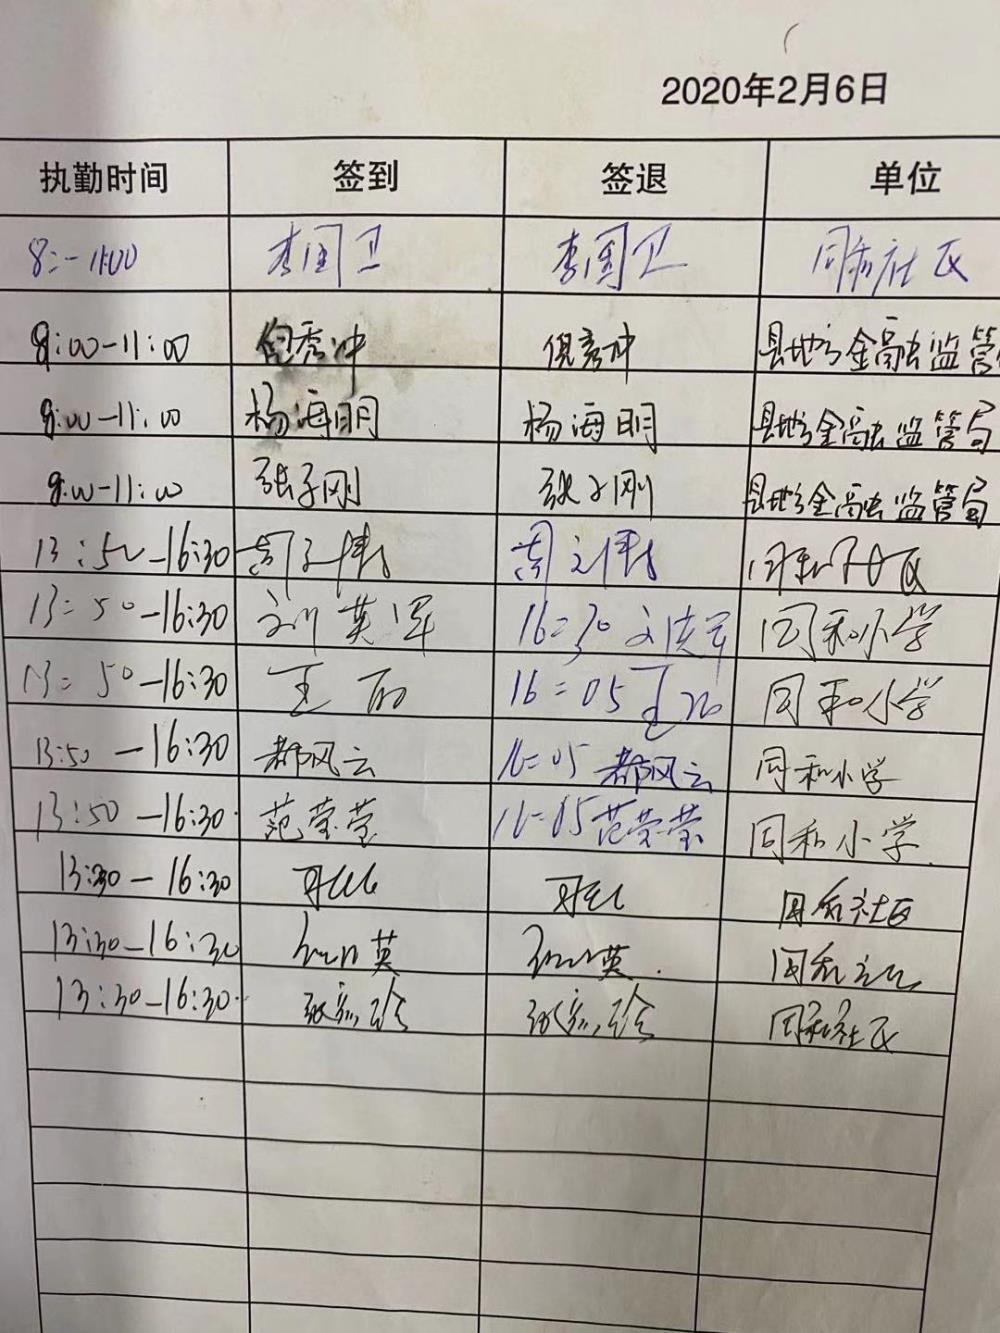 2020年2月6日
执勤时间 签到 签退 单位
8:-11:00 李国卫 李国卫 同和社区
9:00-11:00 倪秀冲 倪秀冲 县地方金融监管
9:00-11:00 杨海明 杨海明 县地方金融监管局
9:00-11:00 张子刚 张子刚 县地方金融监管局
13:50-16:30 周 周 同和社区
13:50-16:30 刘英军 16:30 刘英军 同和小学
13:50-16:30 王丽 16:05 王丽 同和小学
13:50-16:30 都风云 16:05 都风云 同和小学
13:50-16:30 范莹莹 16:05 范莹莹 同和小学
13:30-16:30 同和社区
13:30-16:30 英 英 同和社区
13:30-16:30 张 张 同和社区